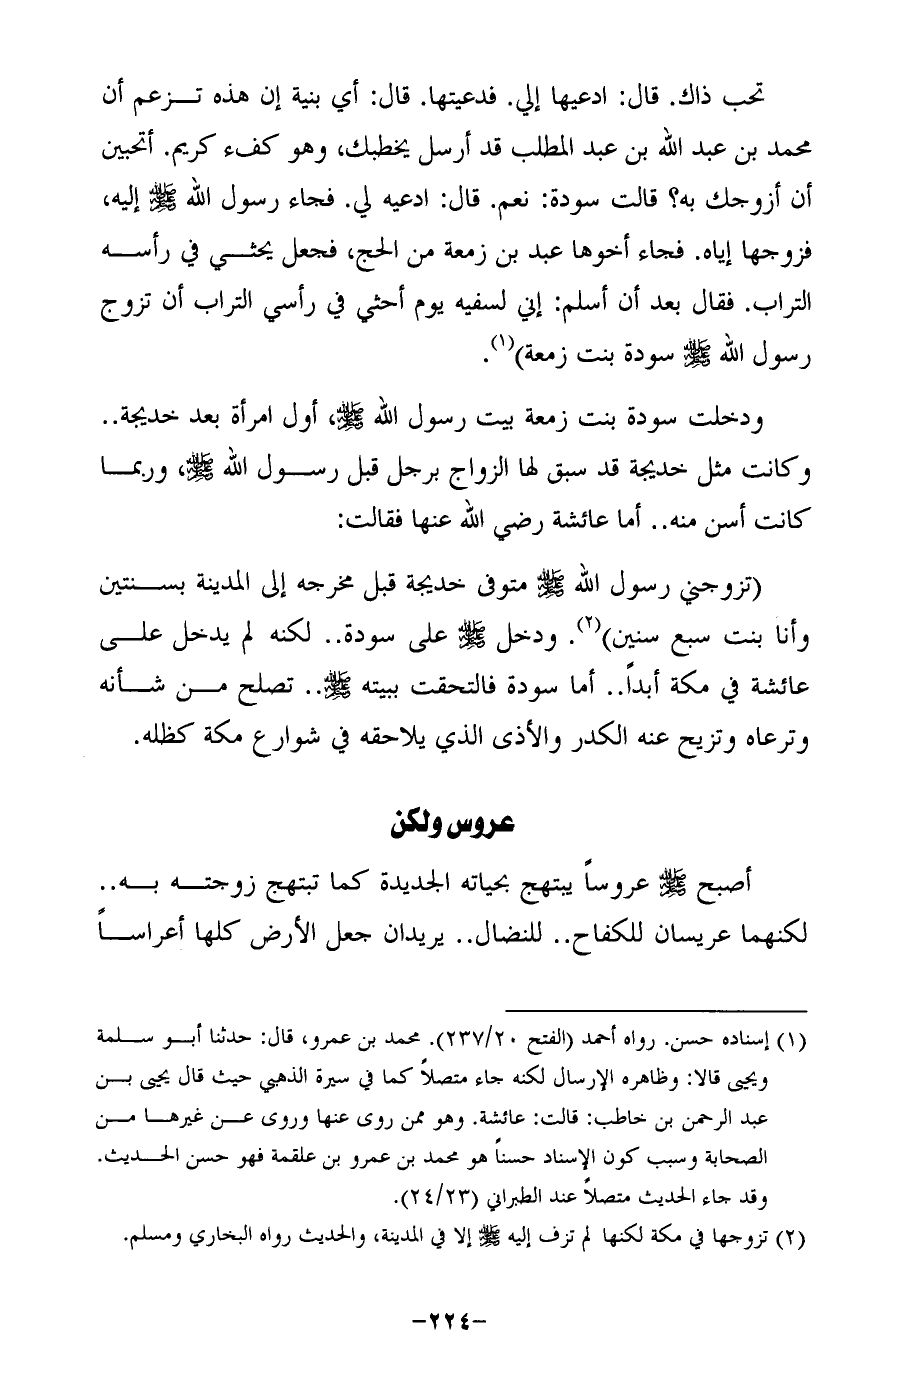 تحب ذاك. قال: ادعيها إلي. فدعيتها. قال: أي بنية إن هذه تــزعم أن
محمد بن عبد الله بن عبد المطلب قد أرسل يخطبك، وهو كفء كريم. أتحبين
أن أزوجك به؟ قالت سودة: نعم. قال: ادعيه لي. فجاء رسول الله ﷺ إليه،
فزوجها إياه. فجاء أخوها عبد بن زمعة من الحج، فجعل يحثــي في رأســه
التراب. فقال بعد أن أسلم: إني لسفيه يوم أحثي في رأسي التراب أن تزوج
رسول الله ﷺ سودة بنت زمعة)(١).
ودخلت سودة بنت زمعة بيت رسول الله ﷺ، أول امرأة بعد خديجة..
وكانت مثل خديجة قد سبق لها الزواج برجل قبل رســول الله ﷺ، وربمــا
كانت أسن منه.. أما عائشة رضي الله عنها فقالت:
(تزوجني رسول الله ﷺ متوفى خديجة قبل مخرجه إلى المدينة بســنتين
وأنا بنت سبع سنين)(٢). ودخل ﷺ على سودة.. لكنه لم يدخل علــى
عائشة في مكة أبداً.. أما سودة فالتحقت ببيته ﷺ.. تصلح مــن شــأنه
وترعاه وتزيح عنه الكدر والأذى الذي يلاحقه في شوارع مكة كظله.
عروس ولكن
أصبح ﷺ عروساً يبتهج بحياته الجديدة كما تبتهج زوجتــه بــه..
لكنهما عريسان للكفاح.. للنضال.. يريدان جعل الأرض كلها أعراســاً
(١) إسناده حسن. رواه أحمد (الفتح ٢٣٧/٢٠). محمد بن عمرو، قال: حدثنا أبــو ســلمة
ويحيى قالا: وظاهره الإرسال لكنه جاء متصلاً كما في سيرة الذهبي حيث قال يحيى بــن
عبد الرحمن بن خاطب: قالت: عائشة. وهو ممن روى عنها وروى عــن غيرهــا مــن
الصحابة وسبب كون الإسناد حسناً هو محمد بن عمرو بن علقمة فهو حسن الحــديث.
وقد جاء الحديث متصلاً عند الطبراني (٢٤/٢٣).
(٢) تزوجها في مكة لكنها لم تزف إليه ﷺ إلا في المدينة، والحديث رواه البخاري ومسلم.
-٢٢٤-